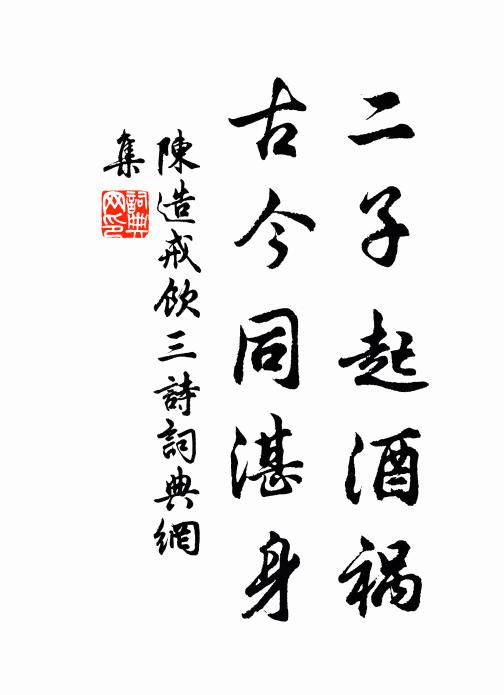 二子起酒祸
古今同湛身
陳造戒飲三詩詞典網
集
詞典
网印